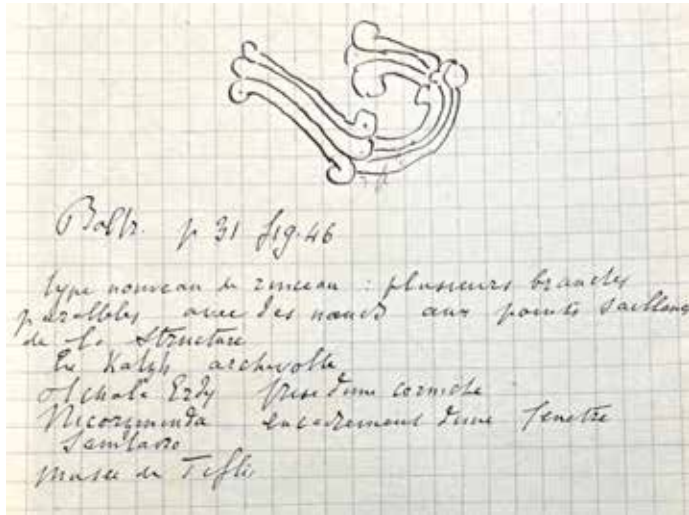 Baltr. p 31 fig. 46
type nouveau de rinceau : plusieurs branches
parallèles avec des nœuds aux points saillants
de la structure
Ex Katsk archivolte
Oltchala Erdy frise d'une corniche
Nicorzminda encadrement d'une fenêtre
Samtavro
musée de Tiflis